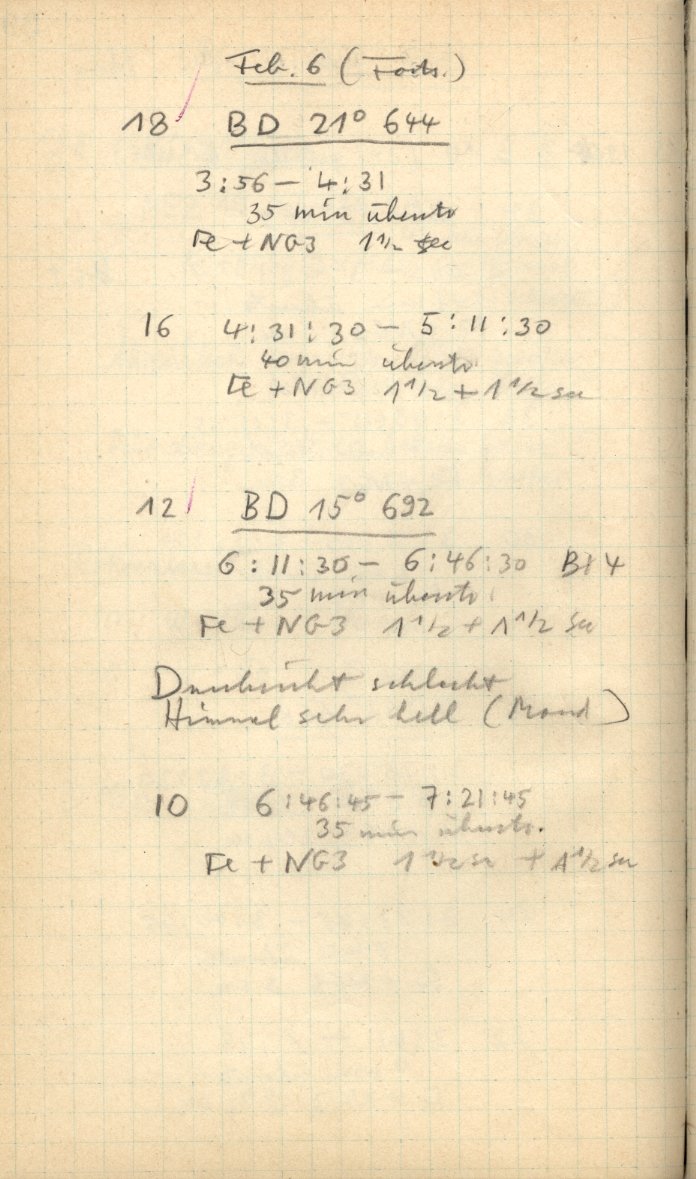 Feb. 6 (Forts.)
18 BD 21° 644
3:56 – 4:31
35 min übersto
Fe + NG3 1 1/2 sec
16 4:31:30 – 5:11:30
40 min übersto
Fe + NG3 1 1/2 + 1 1/2 sec
12 BD 15° 692
6:11:30 – 6:46:30
35 min übersto
Fe + NG3 1 1/2 + 1 1/2 sec
Durchsicht schlecht
Himmel sehr hell (Mond)
10 6:46:45 – 7:21:45
35 min übersto.
Fe + NG3 1 1/2 sec + 1 1/2 sec